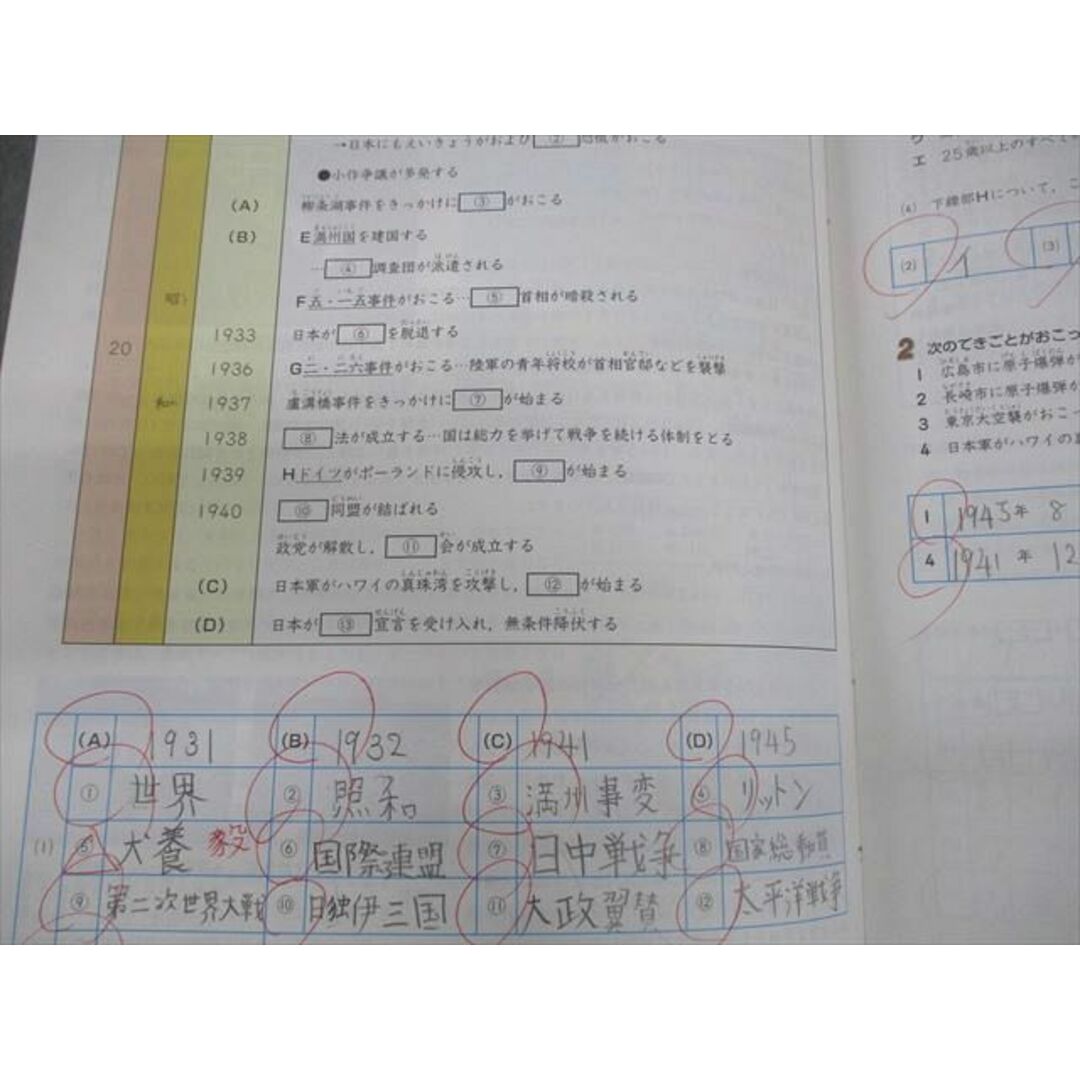 →日本にもえいきょうがおよび ② 恐慌がおこる
●小作争議が多発する
(A) 柳条湖事件をきっかけに ③ がおこる
(B) E満州国を建国する
… ④ 調査団が派遣される
F五・一五事件がおこる… ⑤ 首相が暗殺される
1933 日本が ⑥ を脱退する
20
1936 G二・二六事件がおこる…陸軍の青年将校が首相官邸などを襲撃
1937 盧溝橋事件をきっかけに ⑦ が始まる
1938 ⑧ 法が成立する…国は総力を挙げて戦争を続ける体制をとる
1939 Hドイツがポーランドに侵攻し， ⑨ が始まる
1940 ⑩ 同盟が結ばれる
政党が解散し， ⑪ 会が成立する
(C) 日本軍がハワイの真珠湾を攻撃し， ⑫ が始まる
(D) 日本が ⑬ 宣言を受け入れ，無条件降伏する
昭
和
(A) 1931 (B) 1932 (C) 1941 (D) 1945
① 世界 ② 照和 ③ 満州事変 ④ リットン
(1) ⑤ 犬養 毅 ⑥ 国際連盟 ⑦ 日中戦争 ⑧ 国家総動員
⑨ 第二次世界大戦 ⑩ 日独伊三国 ⑪ 大政翼賛 ⑫ 太平洋戦争
エ 25歳以上のすべて
(4) 下線部Hについて，こ
(2) イ (3)
2 次のできごとがおこっ
1 広島市に原子爆弾が
2 長崎市に原子爆弾が
3 東京大空襲がおこっ
4 日本軍がハワイの真
1 1945年 8
4 1941年 12